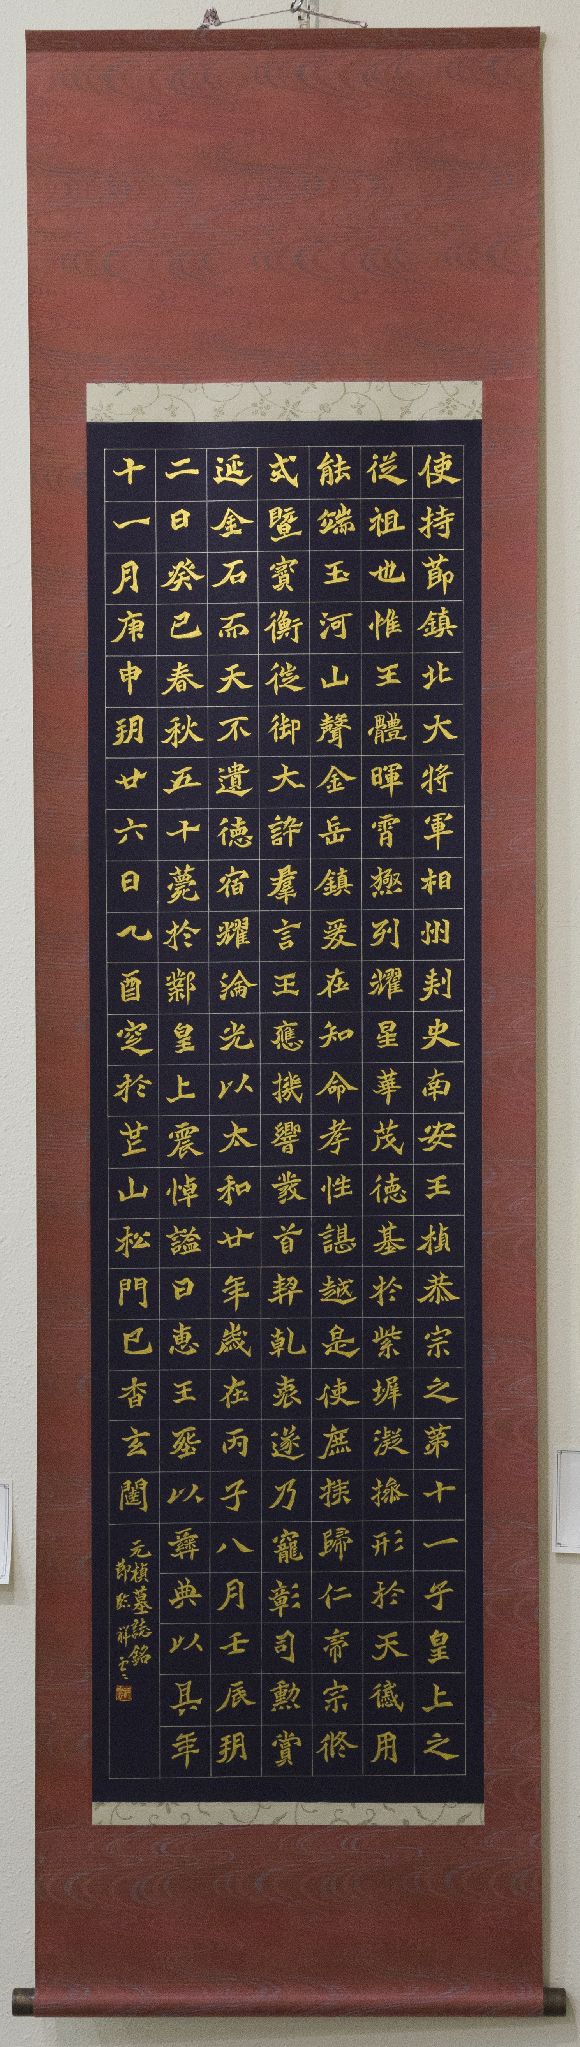 使持節鎮北大將軍相州刾史南安王楨恭宗之第十一子皇上之
從祖也惟王體暉霄極列耀星華茂德基於紫墀凝操形於天感用
能端玉河山聲金岳鎮爰在知命孝性諶越是使庶族歸仁帝宗攸
式暨寶衡徙御大訴羣言王應機響發首契乾衷遂乃寵彰司勳賞
延金石而天不遺德宿耀淪光以太和廿年歲在丙子八月壬辰朔
二日癸巳春秋五十薨於鄴皇上震悼謚曰惠王塟以彝典以其年
十一月庚申朔廿六日乙酉窆於芒山松門已杳玄闥
元楨墓誌銘
節臨祥云